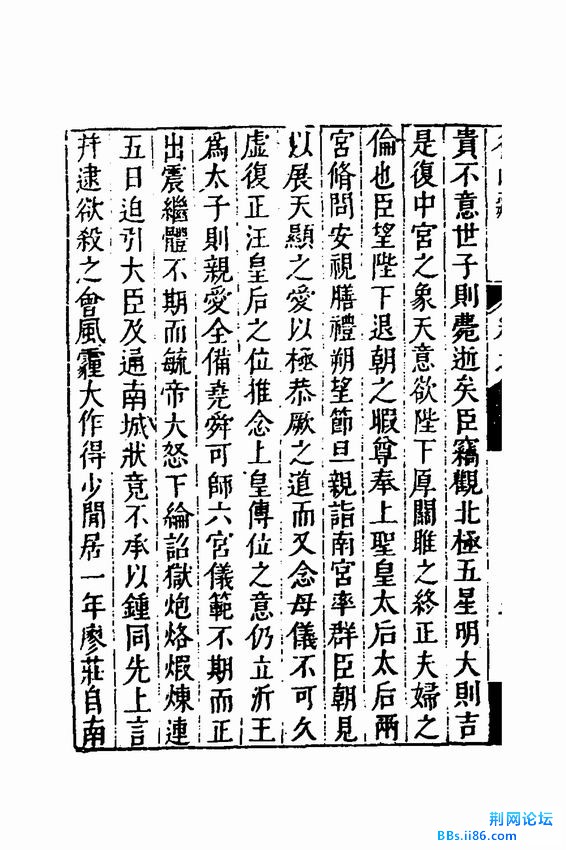 貴不意世子則薨逝矣臣竊觀北極五星明大則吉
是復中宮之象天意欲陛下厚關雎之終正夫婦之
倫也臣望陛下退朝之暇尊奉上聖皇太后太后兩
宮脩問安視膳禮朔望節旦親詣南宮率群臣朝見
以展天顯之愛以極恭厥之道而又念母儀不可久
虛復正汪皇后之位推念上皇傳位之意仍立沂王
為太子則親愛全備堯舜可師六宮儀範不期而正
出震繼體不期而毓帝大怒下綸詔獄炮烙煆煉連
五日迫引大臣及通南城狀竟不承以鍾同先上言
幷逮欲殺之會風霾大作得少間居一年廖莊自南
荆网论坛
BBs.ii86.com